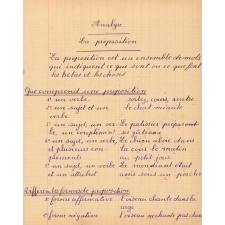 Analyse
La proposition
La proposition est un ensemble de mots
qui indiquent ce que sont ou ce que font
les bêtes et les choses
Que comprend une proposition
1° un verbe sortez, sans, entre
2° un sujet et un verbe le chat miaule
3° un sujet, un ver- Le patissier prépare
be, un complément ses gâteaux
4° un sujet, un verbe Le chien aboie dans
et plusieurs com la cour le matin
pléments au petit jour
5° un sujet, un verbe Le mendiant était
et un attribut assis sous un porche
Différentes formes de proposition
1° forme affirmative l'oiseau chante dans la
cage
2° forme négative l'oiseau ne chante pas dans